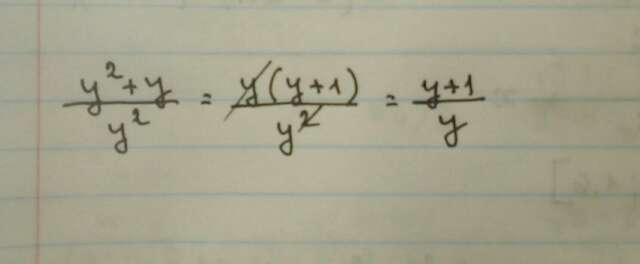 (y²+y)/y² = y(y+1)/y² = (y+1)/y